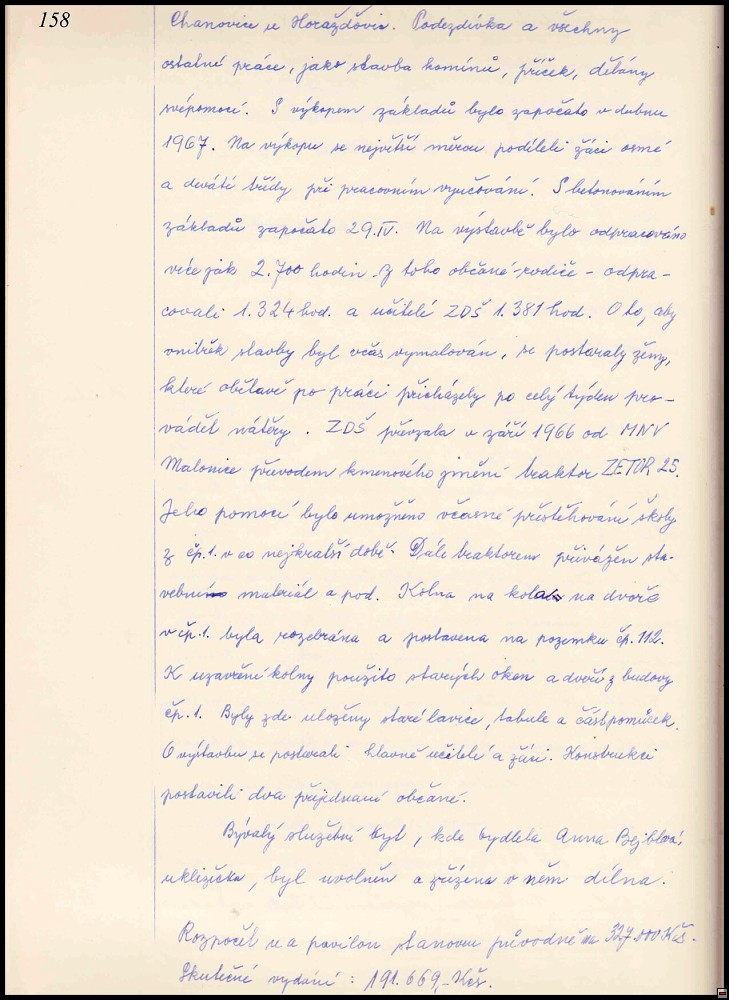 158
Chanovice u Horažďovic. Podezdívka a všechny
ostatní práce, jako stavba komínů, příček, dělány
svépomocí. S výkopem základů bylo započato v dubnu
1967. Na výkopu se největší měrou podíleli žáci osmé
a deváté třídy při pracovním vyučování. S betonováním
základů započato 29.IV. Na výstavbě bylo odpracováno
více jak 2.700 hodin. Z toho občané-rodiče - odpra-
covali 1.324 hod. a učitelé ZDŠ 1.381 hod. O to, aby
vnitřek stavby byl včas vymalován, se postaraly ženy,
které obětavě po práci přicházely po celý týden pro-
vádět nátěry. ZDŠ převzala v září 1966 od MNV
Malonice převodem kmenového jmění traktor ZETOR 25.
Jeho pomocí bylo umožněno včasné přestěhování školy
z čp.1. v co nejkratší době. Dále traktorem přivážen sta-
vební materiál a pod. Kolna na kola na dvoře
v čp.1. byla rozebrána a postavena na pozemku čp. 112.
K uzavření kolny použito starých oken a dveří z budovy
čp.1. Byly zde uloženy staré lavice, tabule a část pomůcek.
O výstavbu se postarali hlavně učitelé a žáci. Konstrukci
postavili dva přejednaní občané.
Bývalý služební byt, kde bydlela Anna Bejblová,
uklizečka, byl uvolněn a zřízena v něm dílna.
Rozpočet na pavilon stanoven původně na 327.000 Kčs.
Skutečné vydání: 191.669,- Kčs.